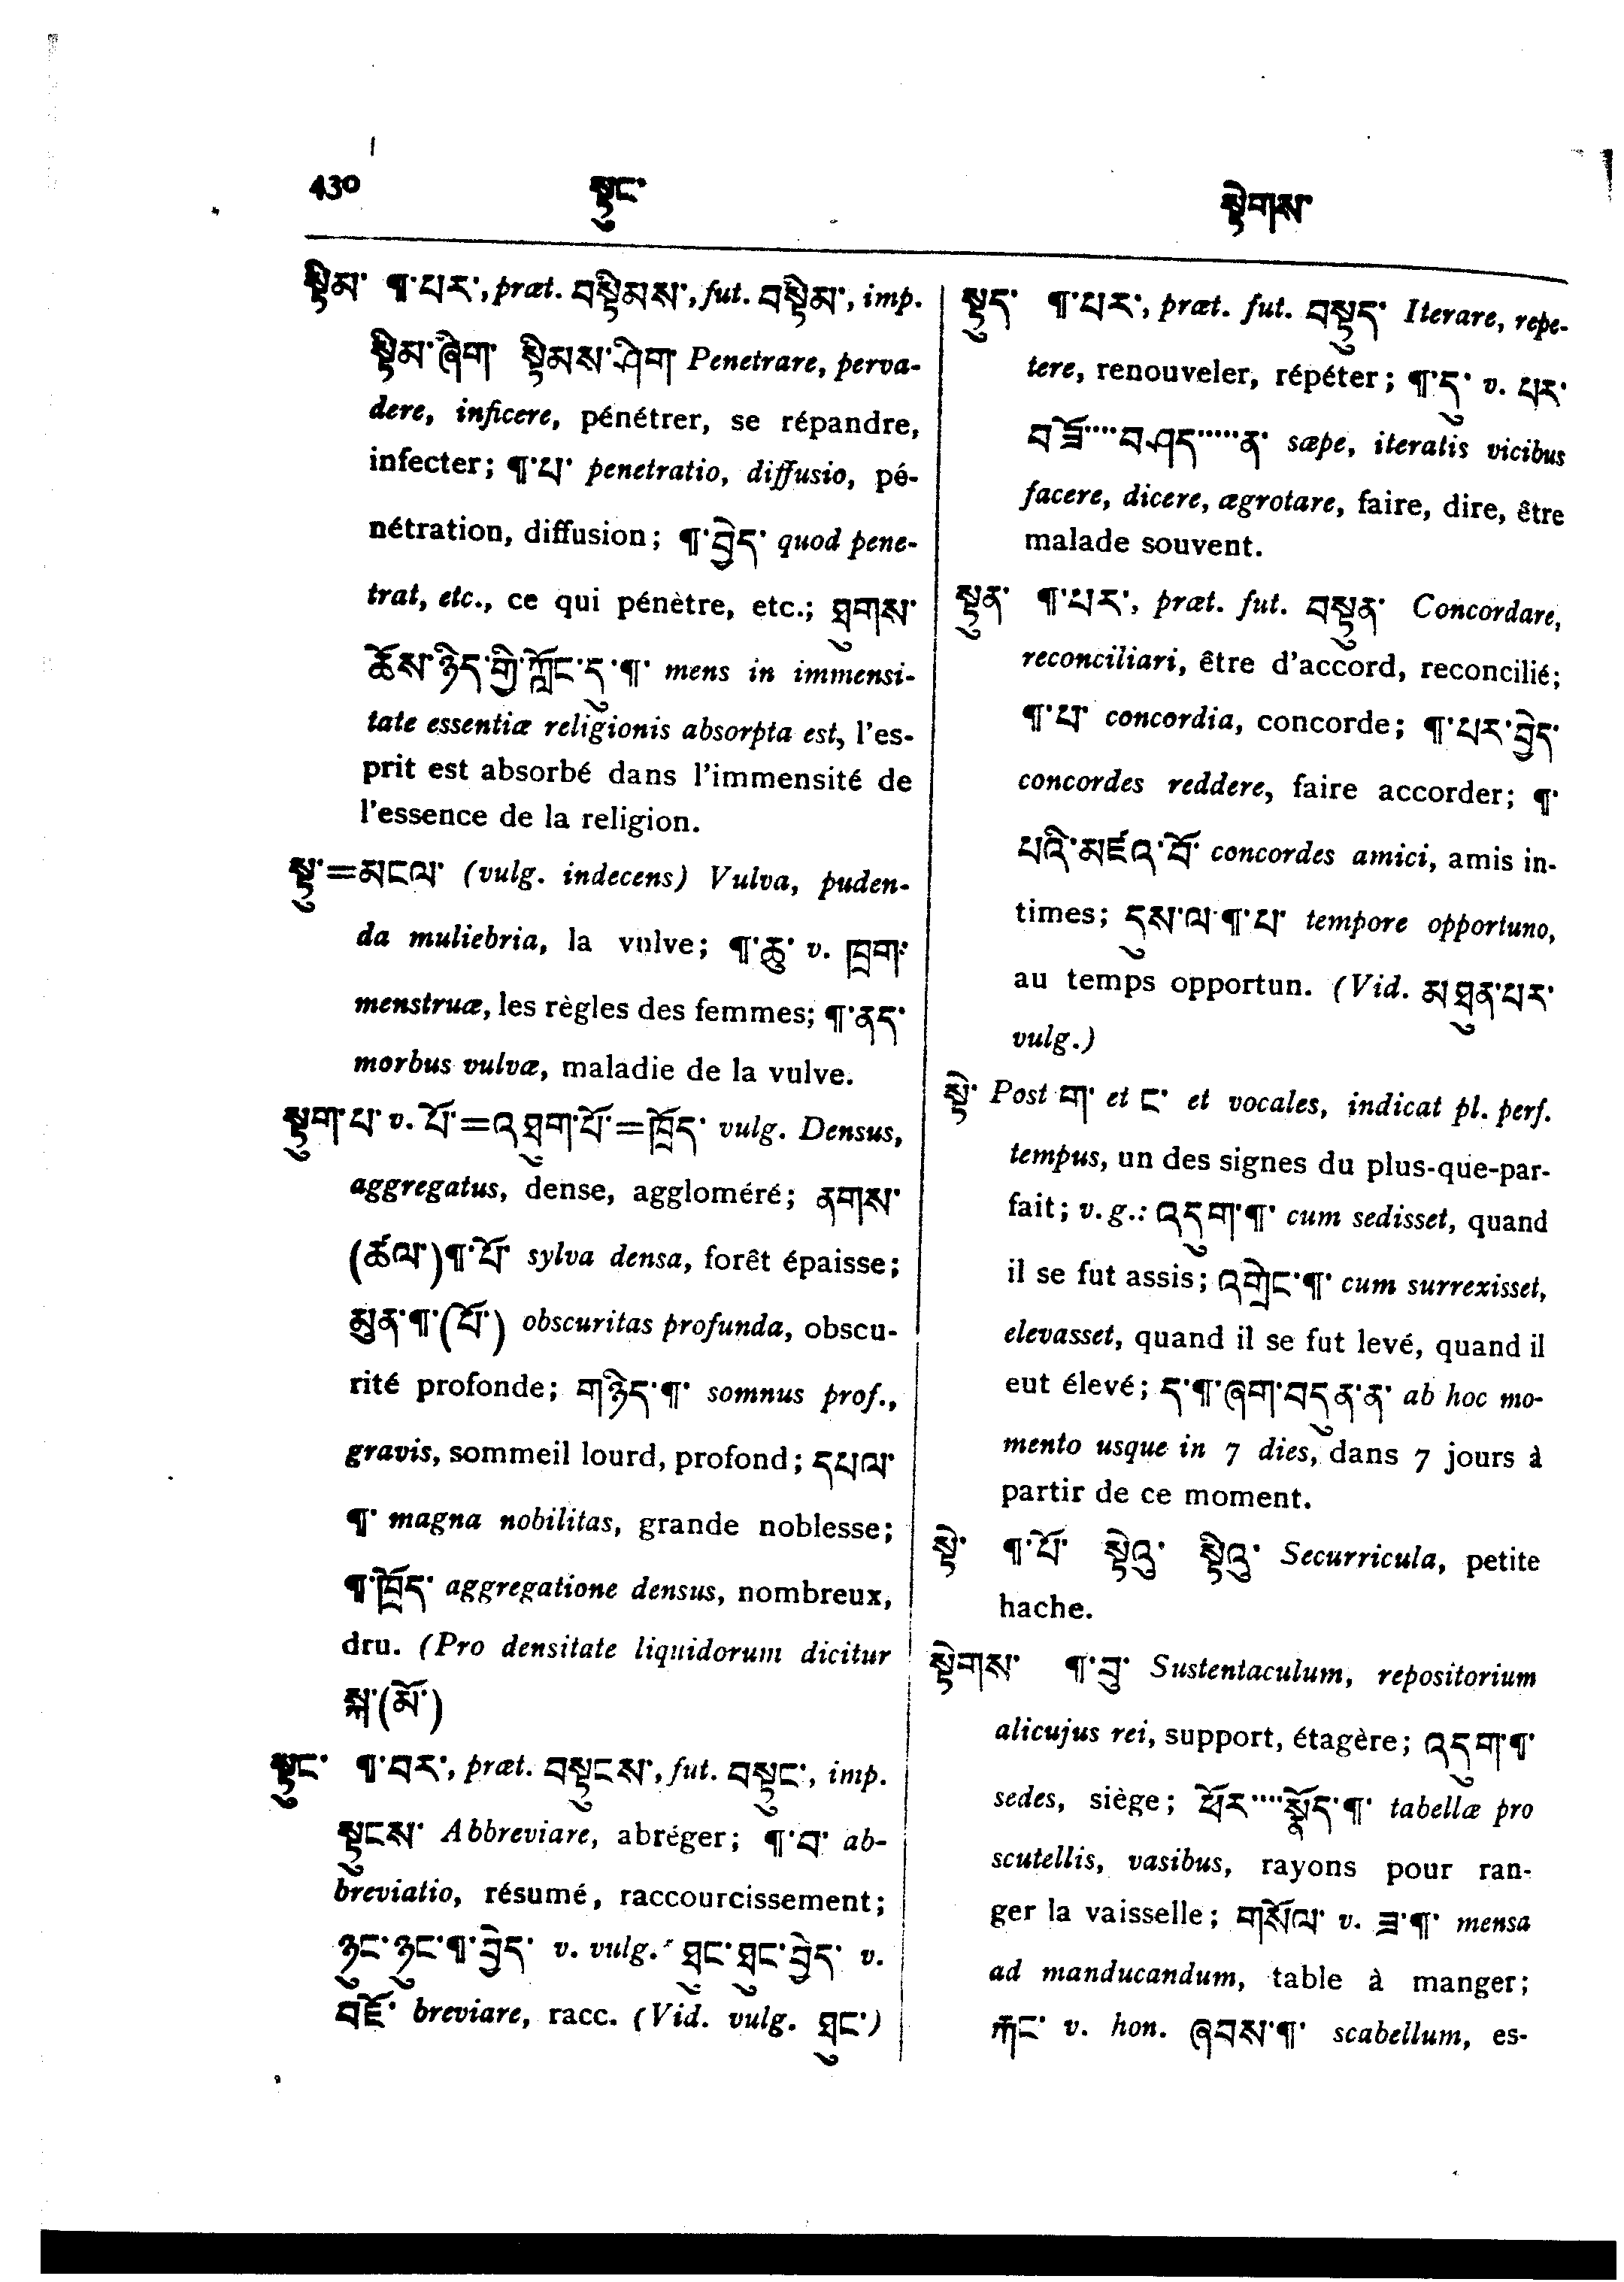 430 སྟུང་ སྟེགས་
སྟིམ་ ¶་པར་, præt. བསྟིམས་, fut. བསྟིམ་, imp.
སྟིམ་ཞིག་ སྟིམས་ཤིག་ Penetrare, perva-
dere, inficere, pénétrer, se répandre,
infecter; ¶་པ་ penetratio, diffusio, pé-
nétration, diffusion; ¶་བྱེད་ quod pene-
trat, etc., ce qui pénètre, etc.; ཐུགས་
ཆོས་ཉིད་ཀྱི་ཀློང་དུ་¶་ mens in immensi-
tate essentiæ religionis absorpta est, l'es-
prit est absorbé dans l'immensité de
l'essence de la religion.
སྟུ་=མངལ་ (vulg. indecens) Vulva, puden-
da muliebria, la vulve; ¶་ཆུ་ v. ཁྲག་
menstruæ, les règles des femmes; ¶་ནད་
morbus vulvæ, maladie de la vulve.
སྟུག་པ་ v. པོ་=འཐུག་པོ་=ཁྲོད་ vulg. Densus,
aggregatus, dense, aggloméré; ནགས་
(ཚལ་)¶་པོ་ sylva densa, forêt épaisse;
མུན་¶་(པོ་) obscuritas profunda, obscu-
rité profonde; གཉིད་¶་ somnus prof.,
gravis, sommeil lourd, profond; དཔལ་
¶་ magna nobilitas, grande noblesse;
¶་ཁྲོད་ aggregatione densus, nombreux,
dru. (Pro densitate liquidorum dicitur
སྐ་(མོ་)
སྟུང་ ¶་བར་, præt. བསྟུངས་, fut. བསྟུང་, imp.
སྟུངས་ Abbreviare, abréger; ¶་བ་ ab-
breviatio, résumé, raccourcissement;
ཉུང་ཉུང་¶་བྱེད་ v. vulg. ཐུང་ཐུང་བྱེད་ v.
བཟོ་ breviare, racc. (Vid. vulg. ཐུང་)
སྟུད་ ¶་པར་, præt. fut. བསྟུད་ Iterare, repe-
tere, renouveler, répéter; ¶་དུ་ v. པར་
བཟོ་····བཤད་·····ན་ sæpe, iteratis vicibus
facere, dicere, ægrotare, faire, dire, être
malade souvent.
སྟུན་ ¶་པར་, præt. fut. བསྟུན་ Concordare,
reconciliari, être d'accord, reconcilié;
¶་པ་ concordia, concorde; ¶་པར་བྱེད་
concordes reddere, faire accorder; ¶་
པའི་མཛའ་བོ་ concordes amici, amis in-
times; དུས་ལ་¶་པ་ tempore opportuno,
au temps opportun. (Vid. མཐུན་པར་
vulg.)
སྟེ་ Post ག་ et ང་ et vocales, indicat pl. perf.
tempus, un des signes du plus-que-par-
fait; v. g.: འདུག་¶་ cum sedisset, quand
il se fut assis; འགྲེང་¶་ cum surrexisset,
elevasset, quand il se fut levé, quand il
eut élevé; ད་¶་ཞག་བདུན་ན་ ab hoc mo-
mento usque in 7 dies, dans 7 jours à
partir de ce moment.
སྟེ་ ¶་པོ་ སྟེའུ་ སྟིའུ་ Securricula, petite
hache.
སྟེགས་ ¶་བུ་ Sustentaculum, repositorium
alicujus rei, support, étagère; འདུག་¶་
sedes, siège; ཕོར་····སྣོད་¶་ tabellæ pro
scutellis, vasibus, rayons pour ran-
ger la vaisselle; གསོལ་ v. ཟ་¶་ mensa
ad manducandum, table à manger;
རྐང་ v. hon. ཞབས་¶་ scabellum, es-